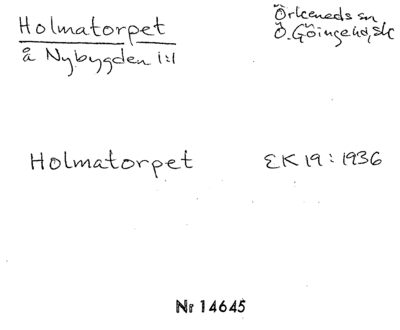 Holmatorpet
å Nybygden 1:1
Örkeneds sn
Ö. Göinge hd, Sk
Holmatorpet EK 19:1936
Nr 14645